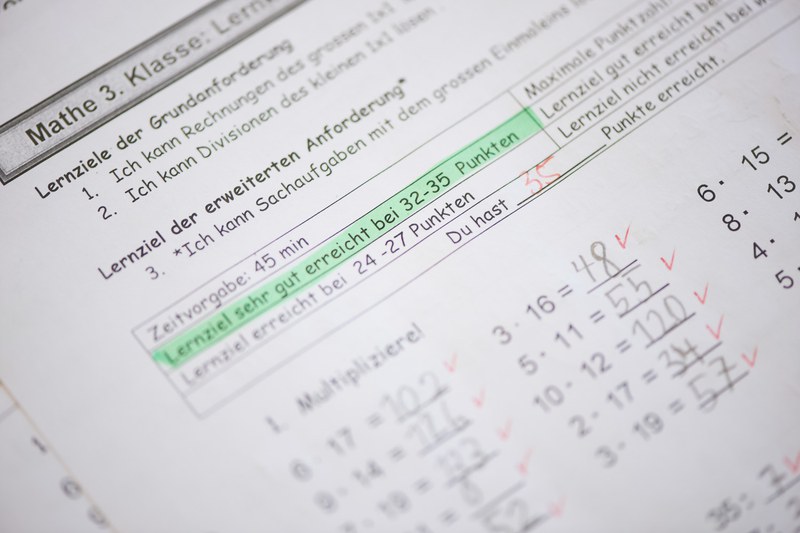 Mathe 3. Klasse:
Lernziele der Grundanforderung
1. Ich kann Rechnungen des grossen 1x1
2. Ich kann Divisionen des kleinen 1x1 lösen.
Lernziel der erweiterten Anforderung*
3. *Ich kann Sachaufgaben mit dem grossen Einmaleins
Zeitvorgabe: 45 min
Maximale Punktzahl
Lernziel sehr gut erreicht bei 32-35 Punkten
Lernziel gut erreicht bei
Lernziel erreicht bei 24-27 Punkten
Lernziel nicht erreicht bei
Du hast 35 Punkte erreicht.
1. Multipliziere!
6 · 17 = 102
3 · 16 = 48
6 · 15 =
5 · 11 = 55
8 · 13
10 · 12 = 120
4 ·
2 · 17 = 34
5 ·
3 · 19 = 57
35 : 7